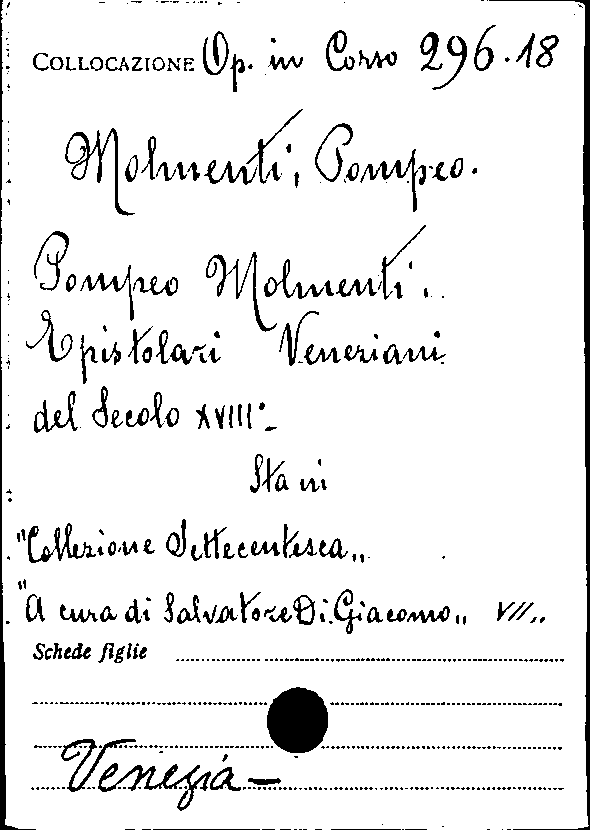 COLLOCAZIONE Op. in Corso 296.18
Molmenti, Pompeo.
Pompeo Molmenti.
Epistolari Veneziani
del Secolo XVIII°-
Sta in
"Collezione Settecentesca„
"A cura di Salvatore Di Giacomo„ VII..
Schede figlie
Venezia-